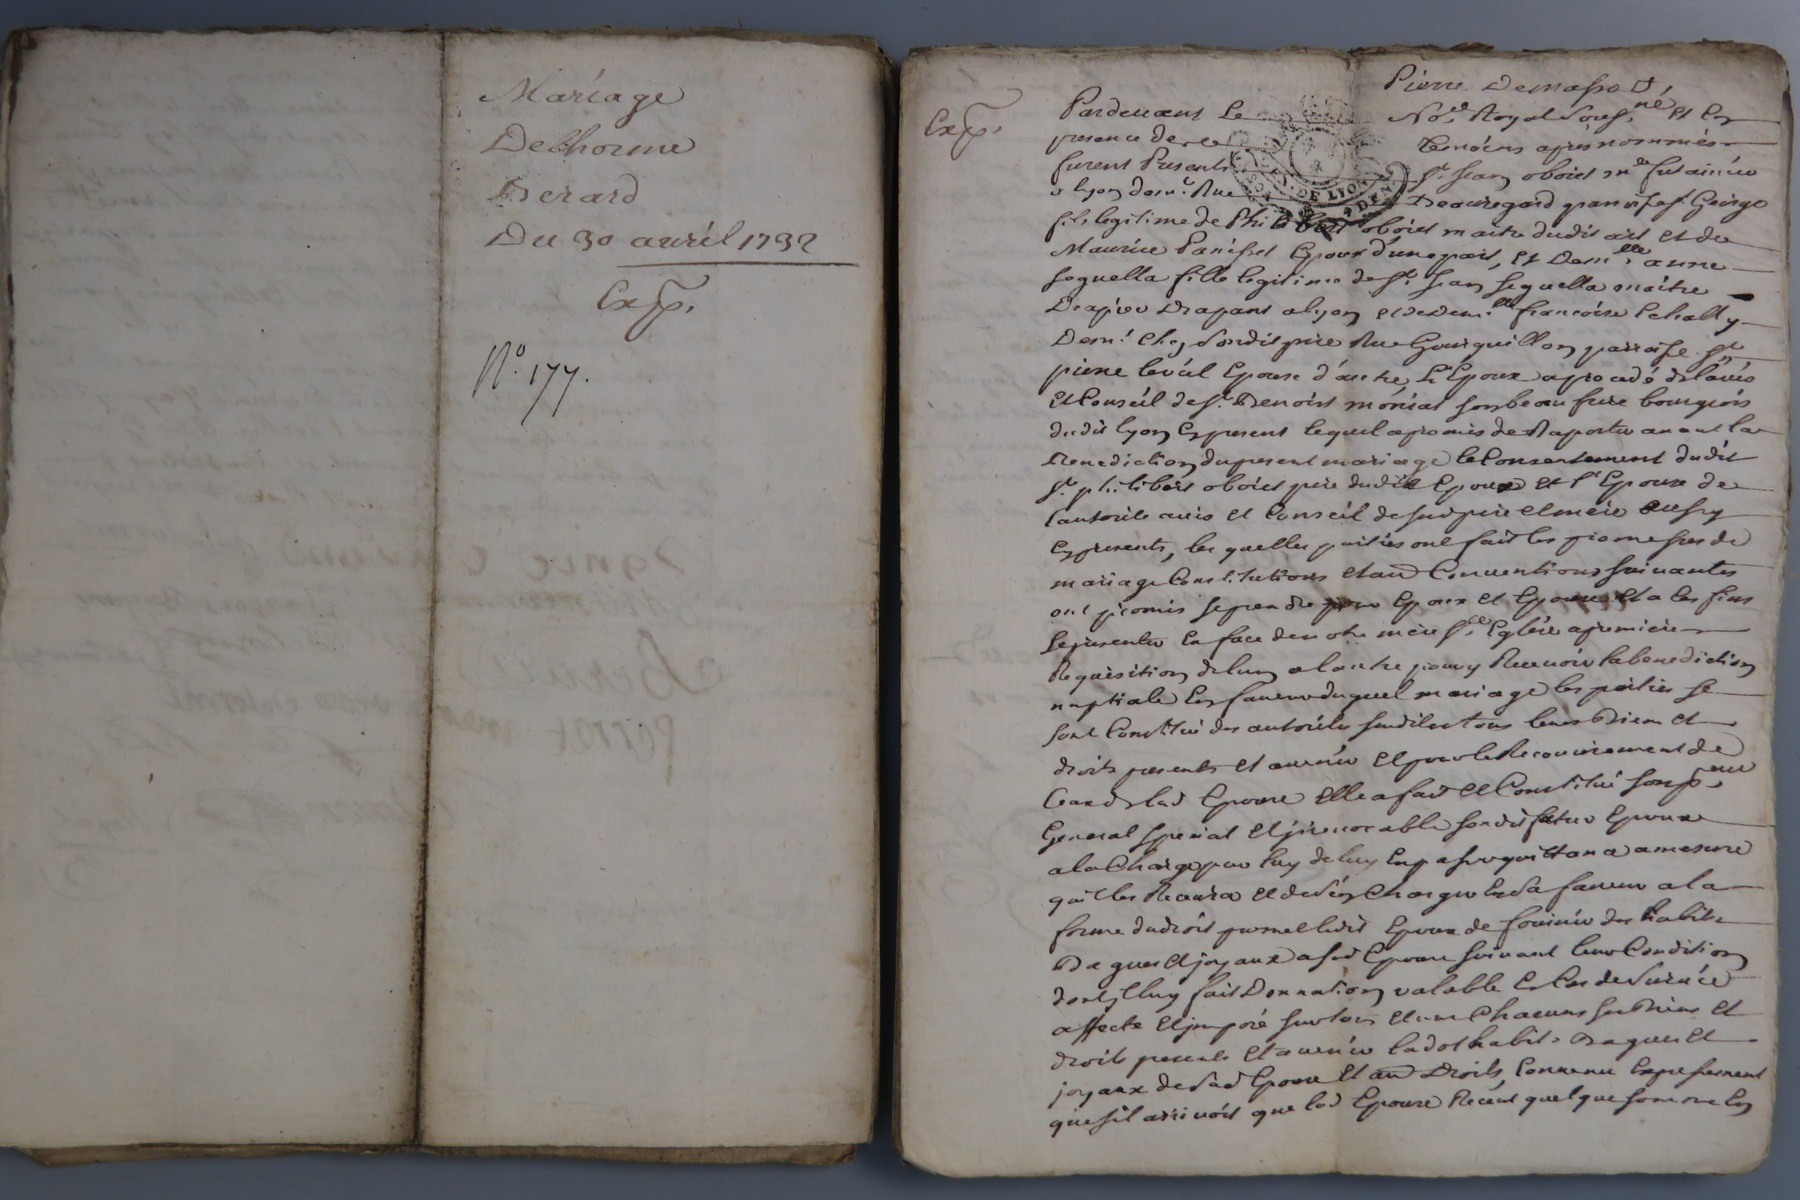 Mariage
Delhorme
Berard
Du 30 avril 1732
Exp.
N.o 177.
Exp.
Pierre Demasso
Pardevant Le No.re Royal sous.né Et En
presence de temoins aprés nommés
furent Presents Sr. Jean oboict
a lyon dem.t Rue Beauregard paroisse St. George
fils legitime de Philibert oboict maitre dudit art et de
Maurice Panisset Epoux d'une part, Et Dem.elle anne
Seguella fille legitime de Sr. Jean Seguella maitre
Drapier Drapant a lyon et de Dem.elle francoise
Dem.t Chez sondit pire Rue Gourguillon parroisse St.
pierre levieil Epouse d'autre, L'Epoux a procedé de l'avis
Et Conseil de Sr. Benoist moniat son beau frere bourgeois
dudit lyon Cy present lequel a promis de Raporter avant la
Benediction du present mariage le Consentement dudit
Sr. philibert oboict pere dudit Epoux Et l'Epouse de
l'autorité avis et Conseil de sesd pere et mere aussy
Cy presents, les quelles parties ont fait les promesses de
mariage Constitutions et aud Conventions suivantes
ont promis se prendre pour Epoux et Epouse et a ces fins
se presenter En face de notre mere Ste. Eglise a premiere
Requisition de lun a lautre pour y Recevoir la benediction
nuptiale En faveur duquel mariage les parties se
sont Constitué des autorités susdites tous leurs Biens et
droits presents et avenir Et pour le Recouvrement de
Ceux de lad Epouse Elle a fait et Constitué son pr.eur
General special Et jrrevocable sondit futur Epoux
a la Charge par luy de luy En passer quittance a mesure
qu'il les Recevra et de s'en Charger En sa faveur a la
forme du droit promet ledit Epoux de fournir des habits
Bagues et joyaux a sad Epouse suivant leur Condition
dont jl luy fait Donnation valable En Cas de survie
affecté et jmposé sur tous et un Chacuns ses Biens et
droits presents et avenir la dot habits Bagues et
joyaux de sad Epouse et aud Droits, Convenu Expressement
que s'il arrivoit que lad Epouse Recut quelque somme En